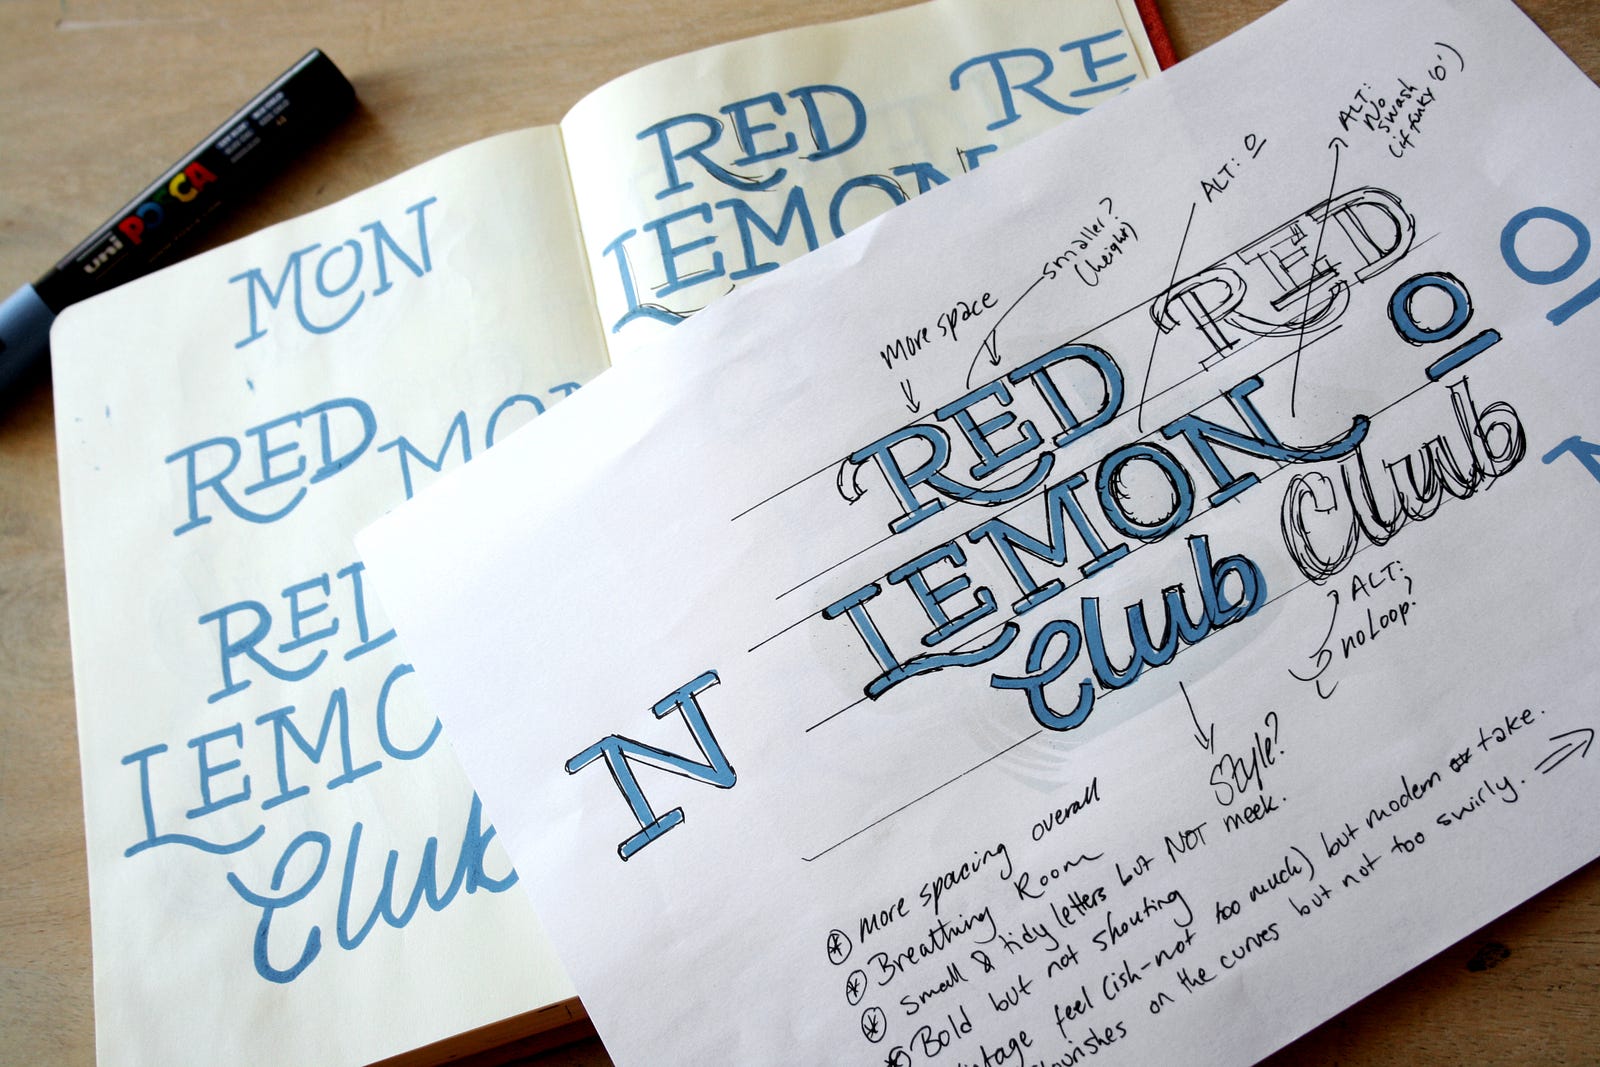 uni POSCA
MON
RED
MON
RED
LEMO
Club
RED
LEMON
RE
More space
smaller?
(height)
ALT: O
ALT:
No
swash
(if funky 'o')
RED
RED
LEMON
O
O
Club
Club
N
ALT:
no loop.
Style?
* more spacing overall
* Breathing Room
* small & tidy letters but NOT meek.
* Bold but not shouting
vintage feel (ish-not too much) but modern take.
flourishes on the curves but not too swirly.